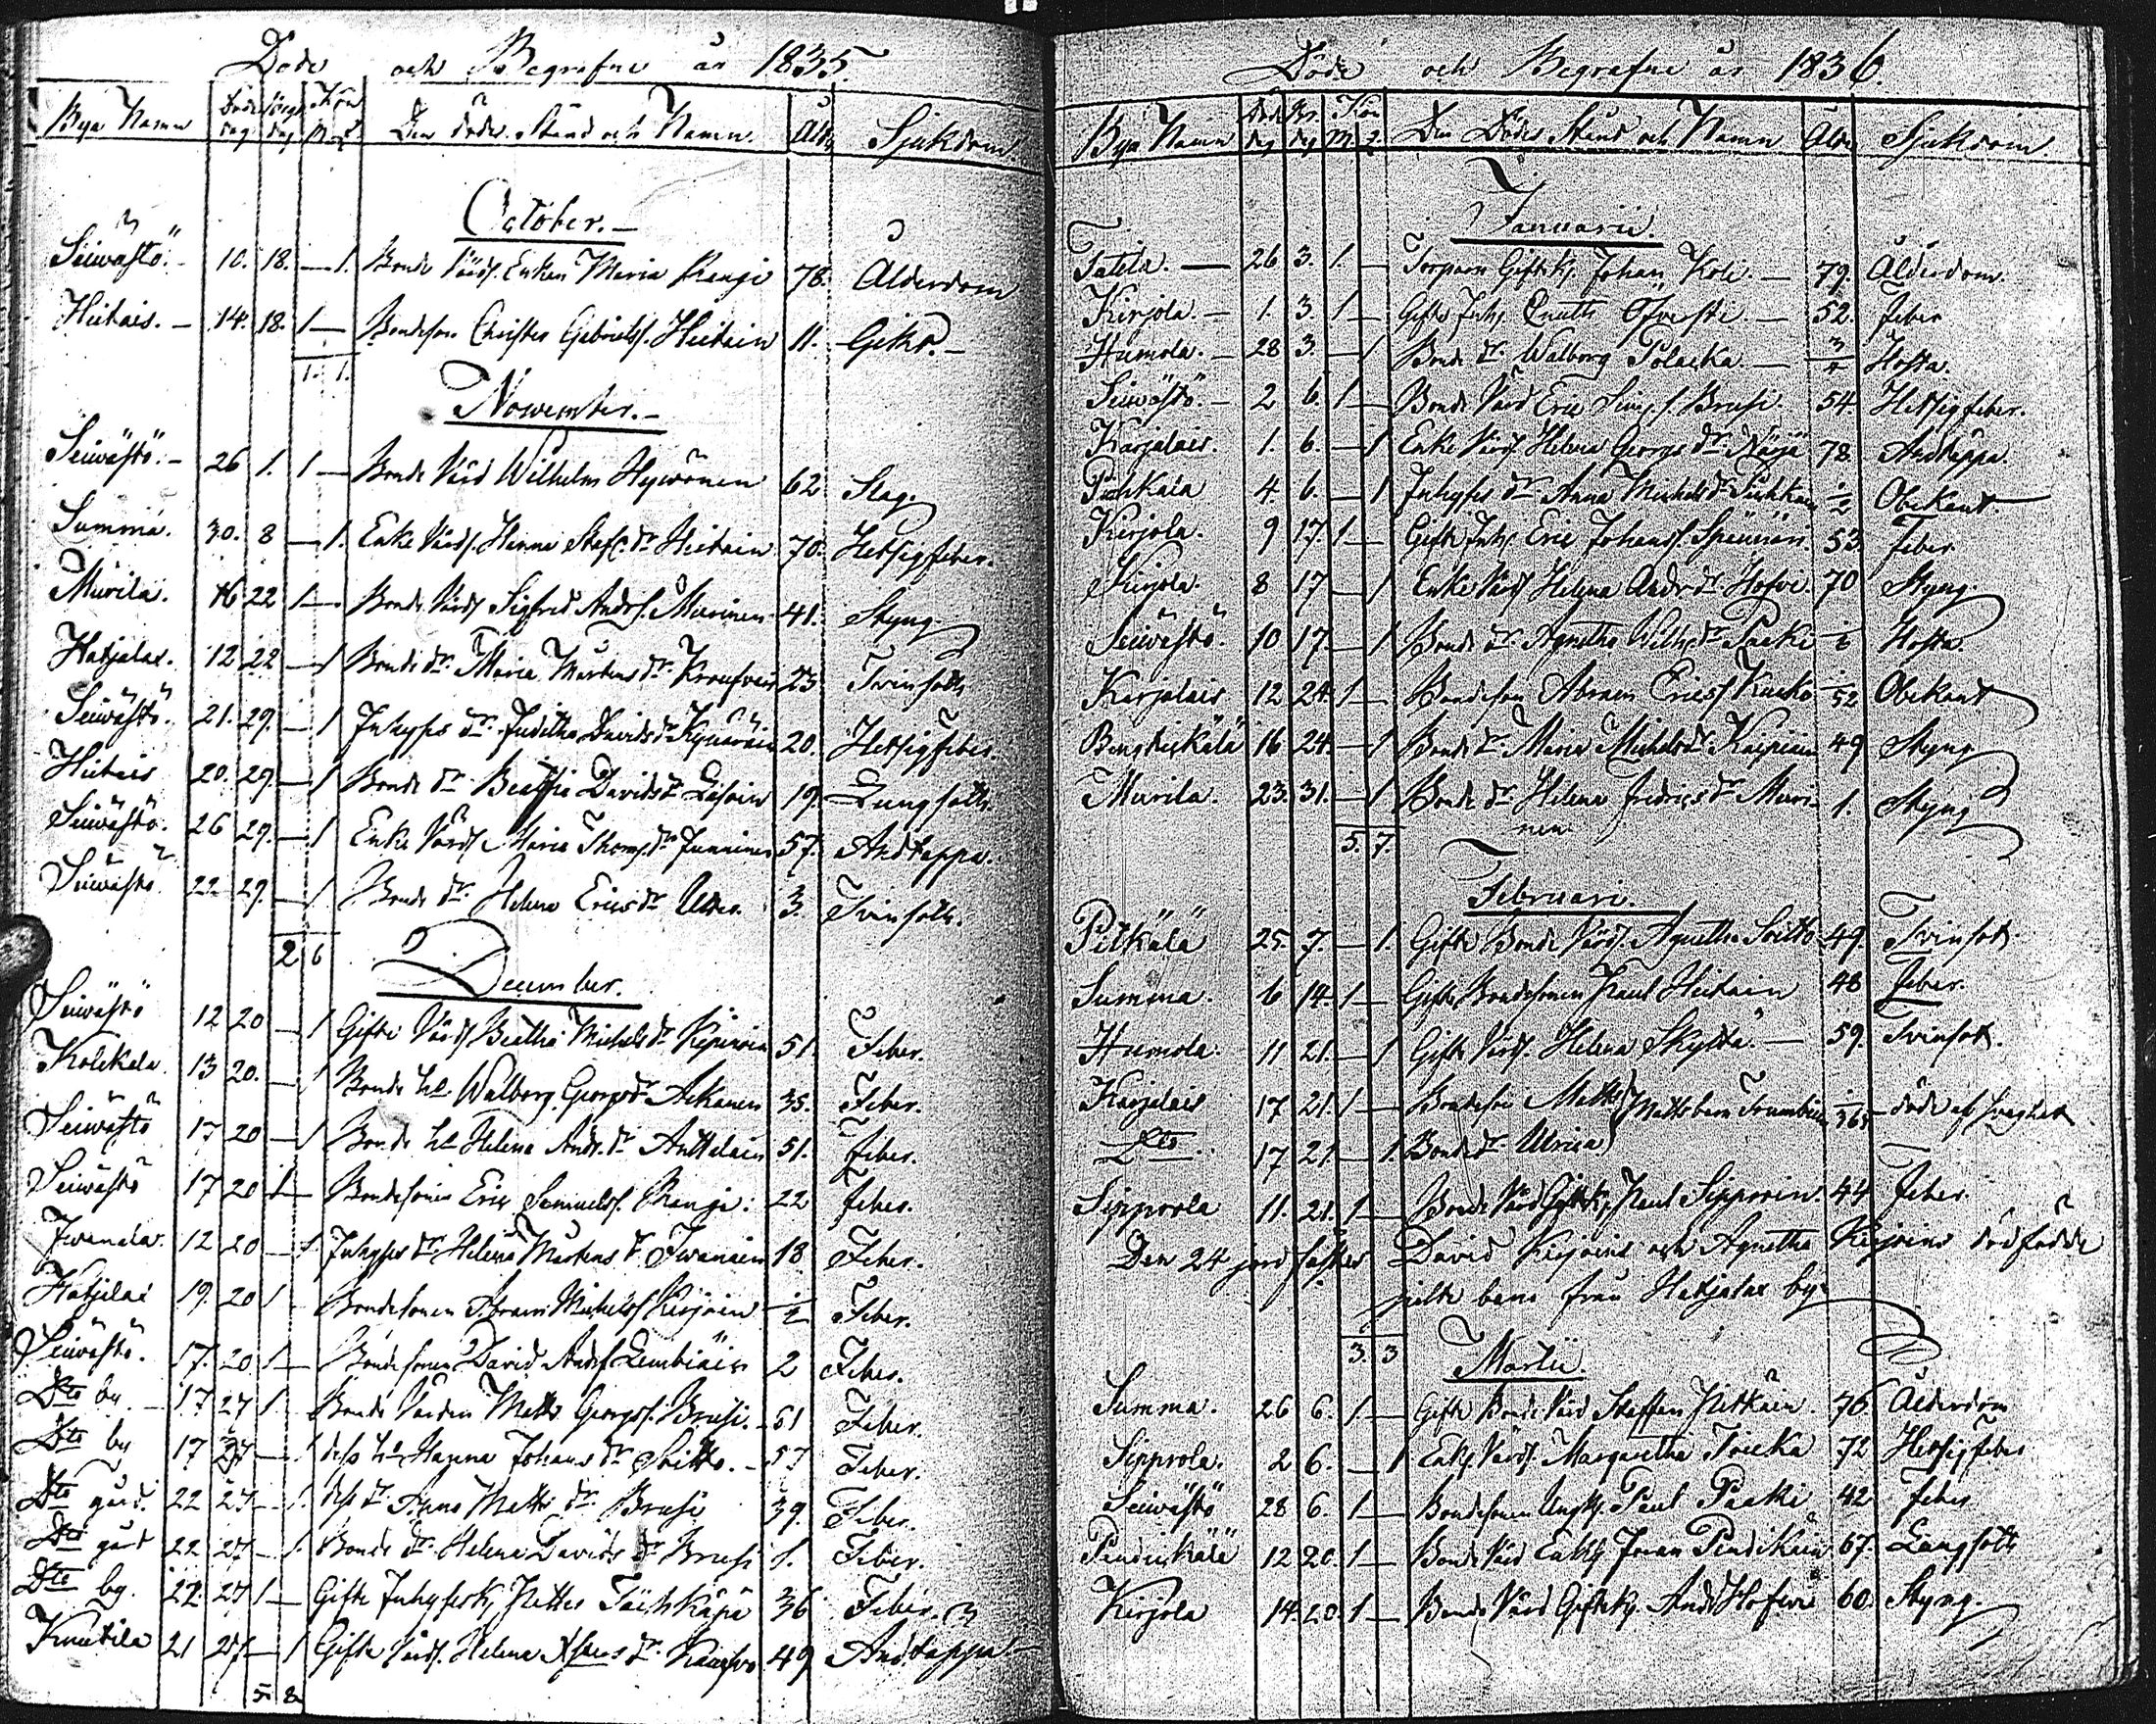 Döde och Begrafne år 1835.
Bya Namn Döde dag Begr. dag Kön M. Q. Den dödes Stånd och Namn. Ålder Sjukdom.
October.
Seiwästö. 10. 18. — 1. Bonde Värds. Enkan Maria Rangi 78. Ålderdom
Hietais. — 14. 18. 1 — Bondeson Christer Gabrielss. Hietain 11. Gikt. —
1. 1.
November. —
Seiwästö. — 26 1. 1 — Bonde Värd Wilhelm Hywönen 62 Slag.
Summa. 30. 8 — 1. Enke Värds. Hanna Staf. dr Hietain 70. Hetsigfeber.
Murila. 16 22 1 — Bonde Värds Sigfred Anders. Murinen 41. Styng
Hatjalax. 12 22 — 1 Bonde dr Maria Mårtens dr 23 Tvinsoth
Seiwästö. 21. 29. — 1 Inhyses dr Juditha Davids dr 20. Hetsigfeber.
Hietais 20. 29. — 1 Bonde dr Beatha Davids dr 19. Lungsoth.
Seiwästö. 26 29. — 1 Enke Värds Maria Thoms. dr Junninen 57. Andtäppa.
Seiwästö. 22 29. — 1 Bonde dr Helena Erics dr 3. Tvinsoth.
2 6
December.
Seiwästö 12 20 — 1 Gifte Värds Beatha Michels dr 51. Feber.
Kolckala 13 20. — 1 Bonde h. Walborg Georgs dr 35. Feber.
Seiwästö 17 20 — 1 Bonde h. Helena Andr. dr Anttalain 51. Feber.
Seiwästö 17 20 1 — Bondesonen Eric Samuels. Rangi. 22 feber.
12 20 — 1 Inhyses dr Helena Mårtens dr Iwanain 18. Feber.
Hatjalax 19. 20 1 — Bondesonen Abram Michelss. Kirjain 1/2 Feber.
Seiwästö. 17. 20 1 — Bondesonen David Anders. Lembiäin 2 Feber.
Dto by. — 17 27 1. Bonde Värden Matts Georgss. Brusi. — 61 Feber.
Dto by 17 27 — 1 dess h. Hanna Johans dr Soitto. — 57 Feber.
Dto gård. 22 27 — 1. dess dr Anna Matts dr Brusi 39. Feber.
Dto gård 22 27 — 1. Bonde dr Helena Davids dr Brusi 1. Feber.
Dto by. 22. 27 1 — Gifte Inhyses k. Petter 36 Feber.
Knutila 21 27 — 1 Gifte Värds. Helena dr 49 Andtäppa —
5 8
Döde och Begrafne år 1836.
Bya Namn Döde dag Br. dag Kön M. Q. Den Dödes Stånd och Namn Ålder Sjukdom.
Januarii.
Tatila. — 26 3. 1. — Torparn Giftek. Johan Koli. — 79. Ålderdom.
Kirjola. — 1. 3. 1 — Gifte Inh. — 52. feber
Humola. — 28 3. — 1 Bonde dr Walborg Polacka. — 3/4 Hosta.
Seiwästö. — 2 6. 1 — Bonde Värd Eric Brusi. 54 Hetsigfeber.
Karjalais. 1. 6. — 1 Enke Värds Helena Georgs dr 78 Andtäppa.
4. 6. — 1 Inhyses dr Anna Michels dr 1/2 Obekant. —
Kirjola. 9 17. 1 — Gifte Inh. Eric Johanss. 53. feber
Kirjola. 8 17 — 1 Enke Värds Helena Anders dr Hofwi. 70 Styng
Seiwästö. 10 17. — 1 Bonde dr Agnetha Wilh. dr Paaki Hosta.
Karjalais 12 24. 1 — Bondeson Abram Ericss. 1/52 Obekant
Bengtiskälä 16 24. — 1 Bonde dr Maria Michels dr 49 Styng
Murila. 23. 31. — 1 Bonde dr Helena Fredrics dr Muri- 1. Styng
nen
5. 7.
Februari.
Pitkälä 25. 7. — 1. Gifte Bonde Värds. Agnetha Soitto 49. Tvinsot.
Summa. 6 14. 1 — Gifte Bondesonen Paul Hietain 48 Feber.
Humola. 11 21. — 1 Gifte Värds. Helena Skyttä. — 59. Tvinsot.
Karjalais 17 21. 1 — Bondeson Matts Matts barn 1/365 döde af svaghet
Dto. 17 21. — 1. Bonde dr Ulrica
Sipprola 11. 21. 1 — Bonde Värd Giftek. Paul Sipproin. 44 feber.
Den 24 jord fästes David Kirjains och Agnetha Kirjains dödfödde
barn från Hatjalax by.
3. 3
Martii.
Summa. 26 6. 1. — Gifte Bonde Värd Staffan Pitkäin. 76 Ålderdom
Sipprola. 2 6. — 1 Enk. Värds. Margaretha 72 Hetsigfeber
Seiwästö 28 6. 1 — Bondesonen Ungk. Paul Paaki 42 feber
12 20. 1 — Bonde Värd Enkl. Johan 67. Lungsoth
Kirjola 14. 20. 1 — Bonde Värd Giftek. And. Hofwi 60. Styng.